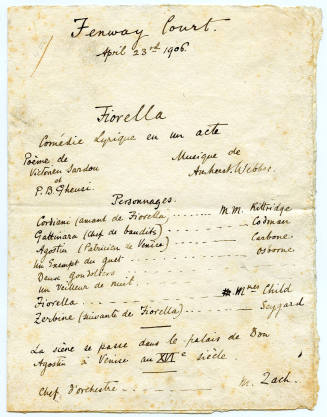 Fenway Court.
April 23rd 1906.
Fiorella
Comédie Lyrique en un acte
Poème de
Victorien Sardou
et
P. B. Gheusi.
Musique de
Amherst Webber.
Personnages.
Cordiani (amant de Fiorella) MM. Kittridge
Gattinara (Chef de bandits) Codman
Agostin (Patricien de Venise) Carbone
Un Exempt du guet Osborne
Deux Gondoliers
Un Veilleur de nuit.
Fiorella Mmes Child
Zerbine (suivante de Fiorella) Seygard
La scène se passe dans le palais de Don
Agostin à Venise au XVIe siècle.
Chef d'orchestre M. Zach.